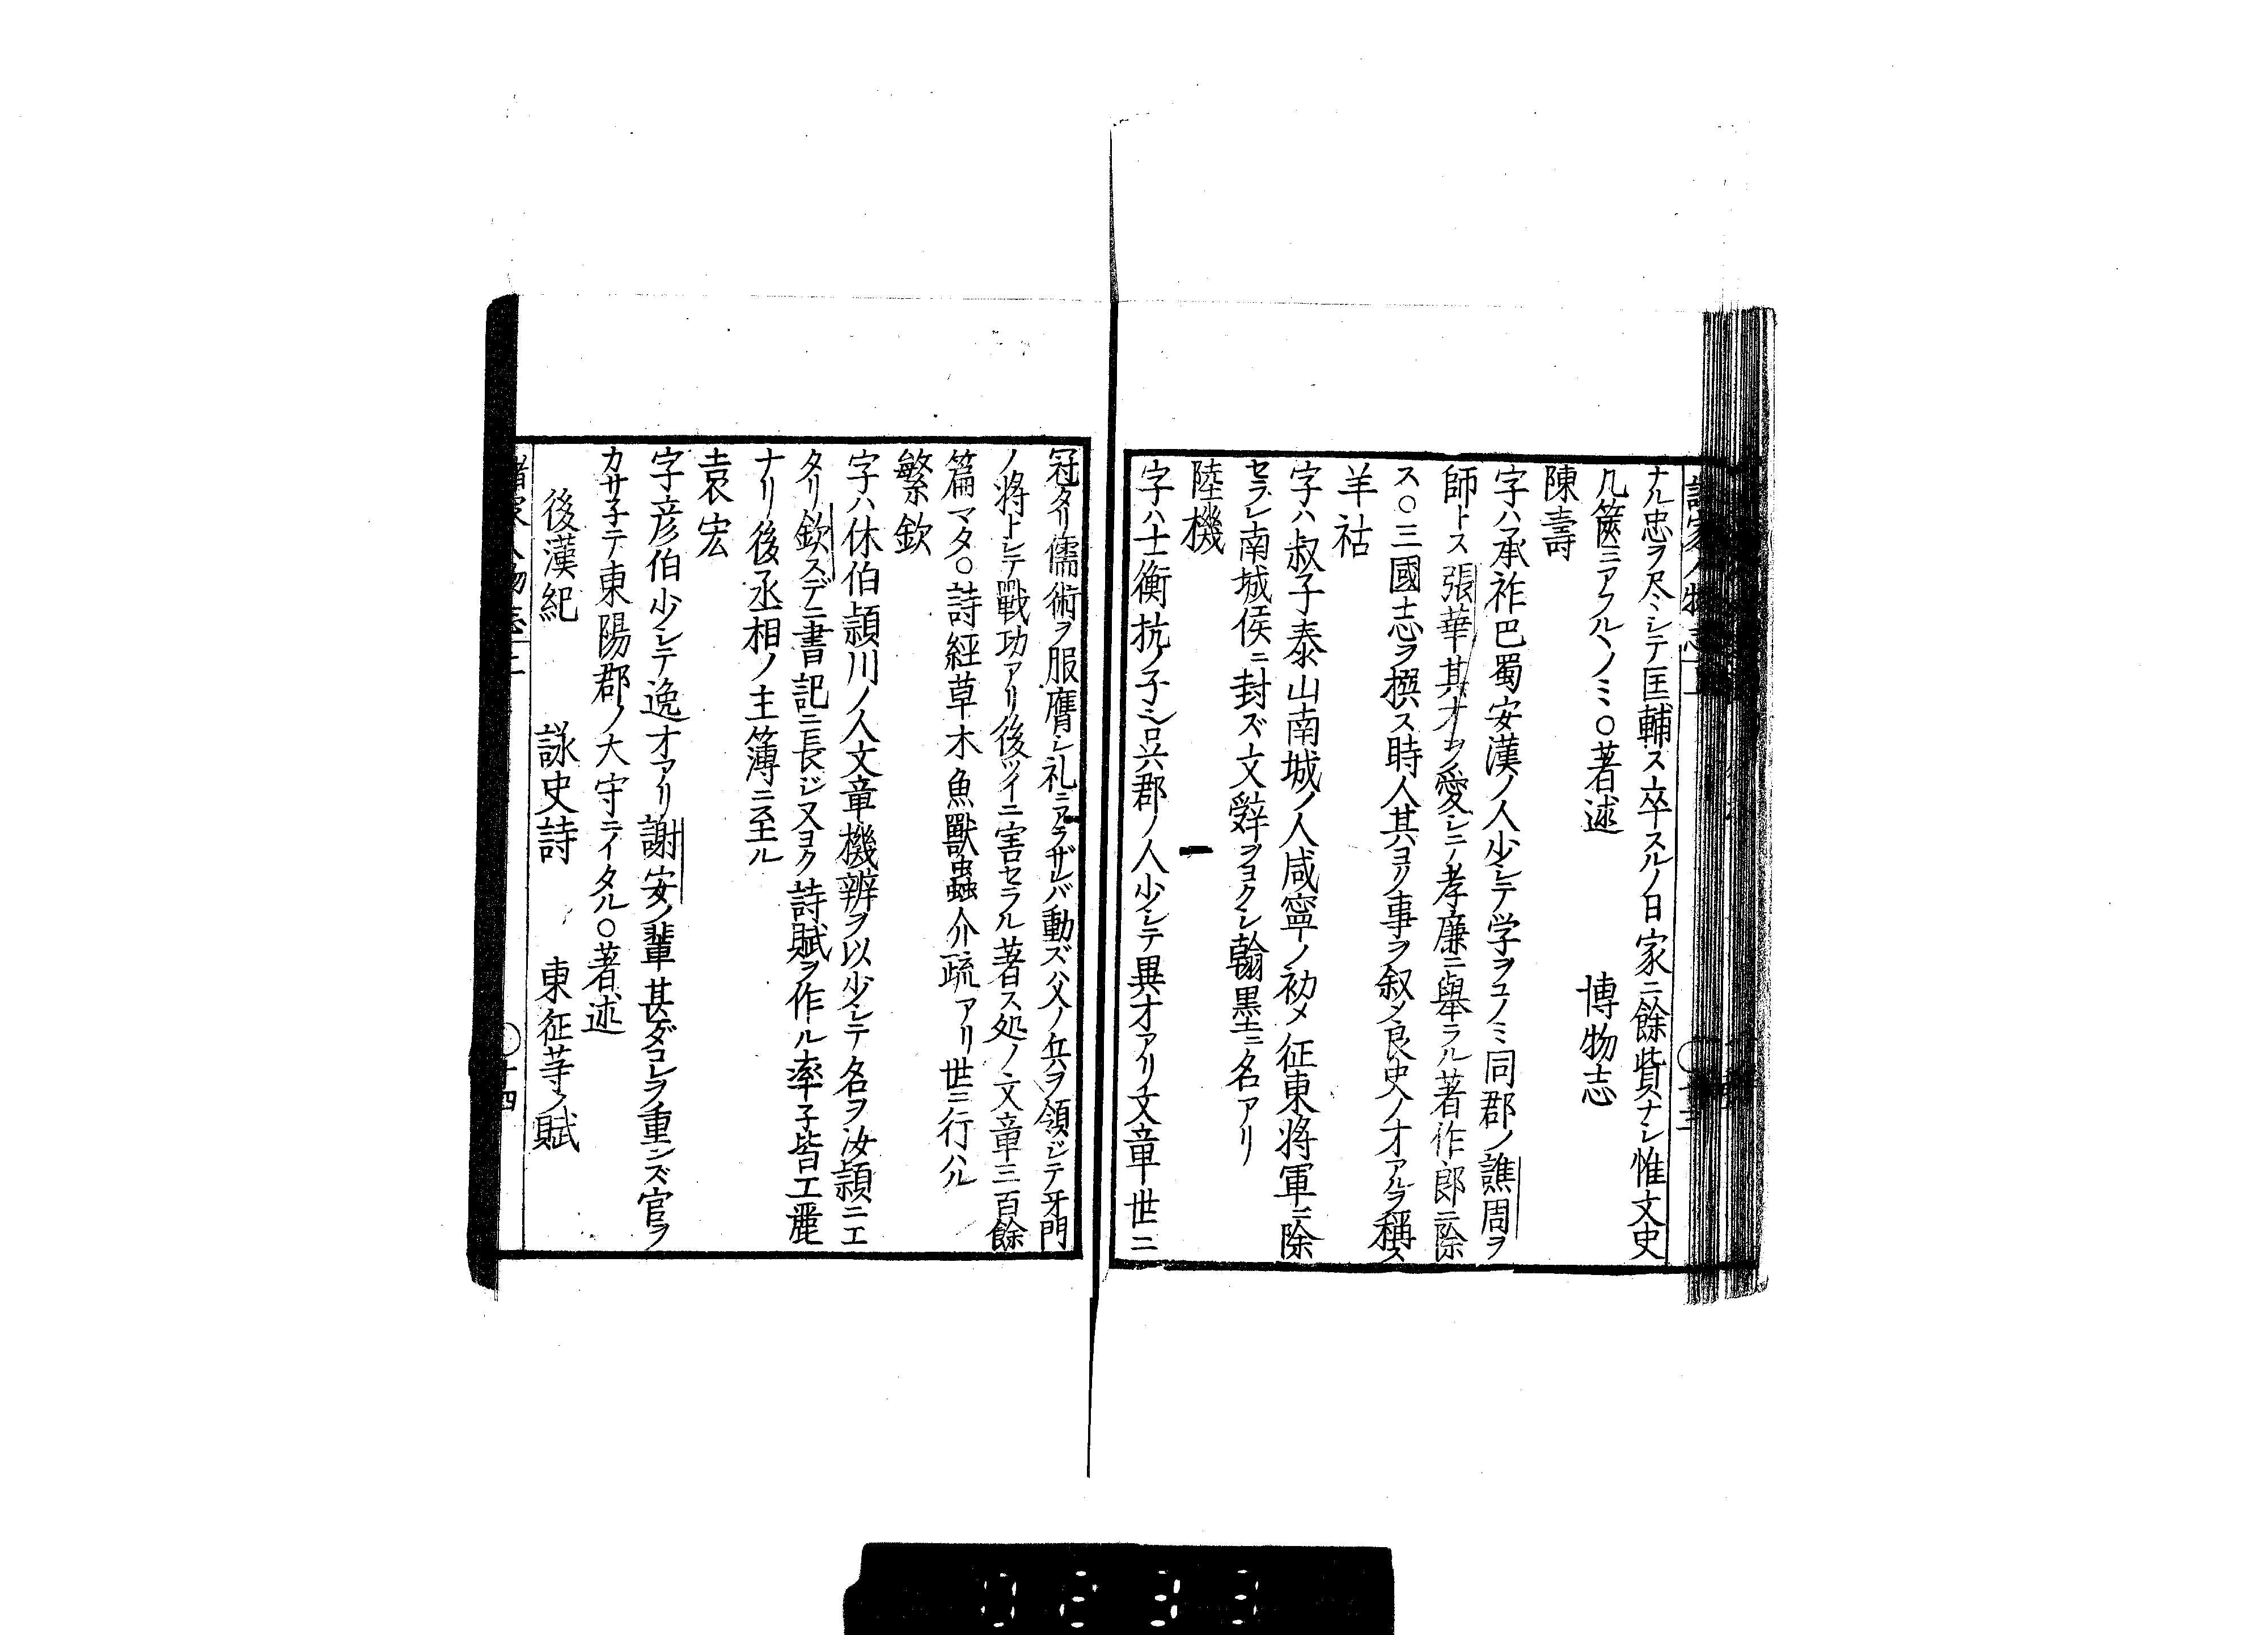 ナル忠ヲ尽シテ匡輔ス卒スルノ日家ニ餘貲ナシ惟文史
几篋ニアフルヽノミ○著述　　博物志
陳壽
字ハ承祚巴蜀安漢ノ人少シテ学ヲコノミ同郡ノ譙周ヲ
師トス張華其才ヲ愛シ孝廉ニ舉ラル著作郎ニ除
ス○三國志ヲ撰ス時人其ヨク事ヲ叙メ良史ノオアルヲ稱ス
羊祜
字ハ叔子泰山南城ノ人咸寧ノ初メ征東将軍ニ除
セラレ南城侯ニ封ズ文辞ヲヨクシ翰墨ニ名アリ
陸機
字ハ士衡抗ノ子シ呉郡ノ人少シテ異才アリ文章世ニ
冠タリ儒術ヲ服膺シ礼ニアラザレバ動ズ父ノ兵ヲ領シテ牙門
ノ将トシテ戰功アリ後ツイニ害セラル著ス処ノ文章三百餘
篇マタ○詩經草木魚獸蟲介疏アリ世ニ行ハル
繁欽
字ハ休伯頴川ノ人文章機辨ヲ以少シテ名ヲ汝頴ニエ
タリ欽スデニ書記ニ長ジ又ヨク詩賦ヲ作ル率子皆工麗
ナリ後丞相ノ主簿ニ至ル
袁宏
字彦伯少シテ逸才アリ謝安ノ輩甚ダコレヲ重ンズ官ヲ
カサ子テ東陽郡ノ大守ニイタル○著述
後漢紀　　詠史詩　　東征等ノ賦